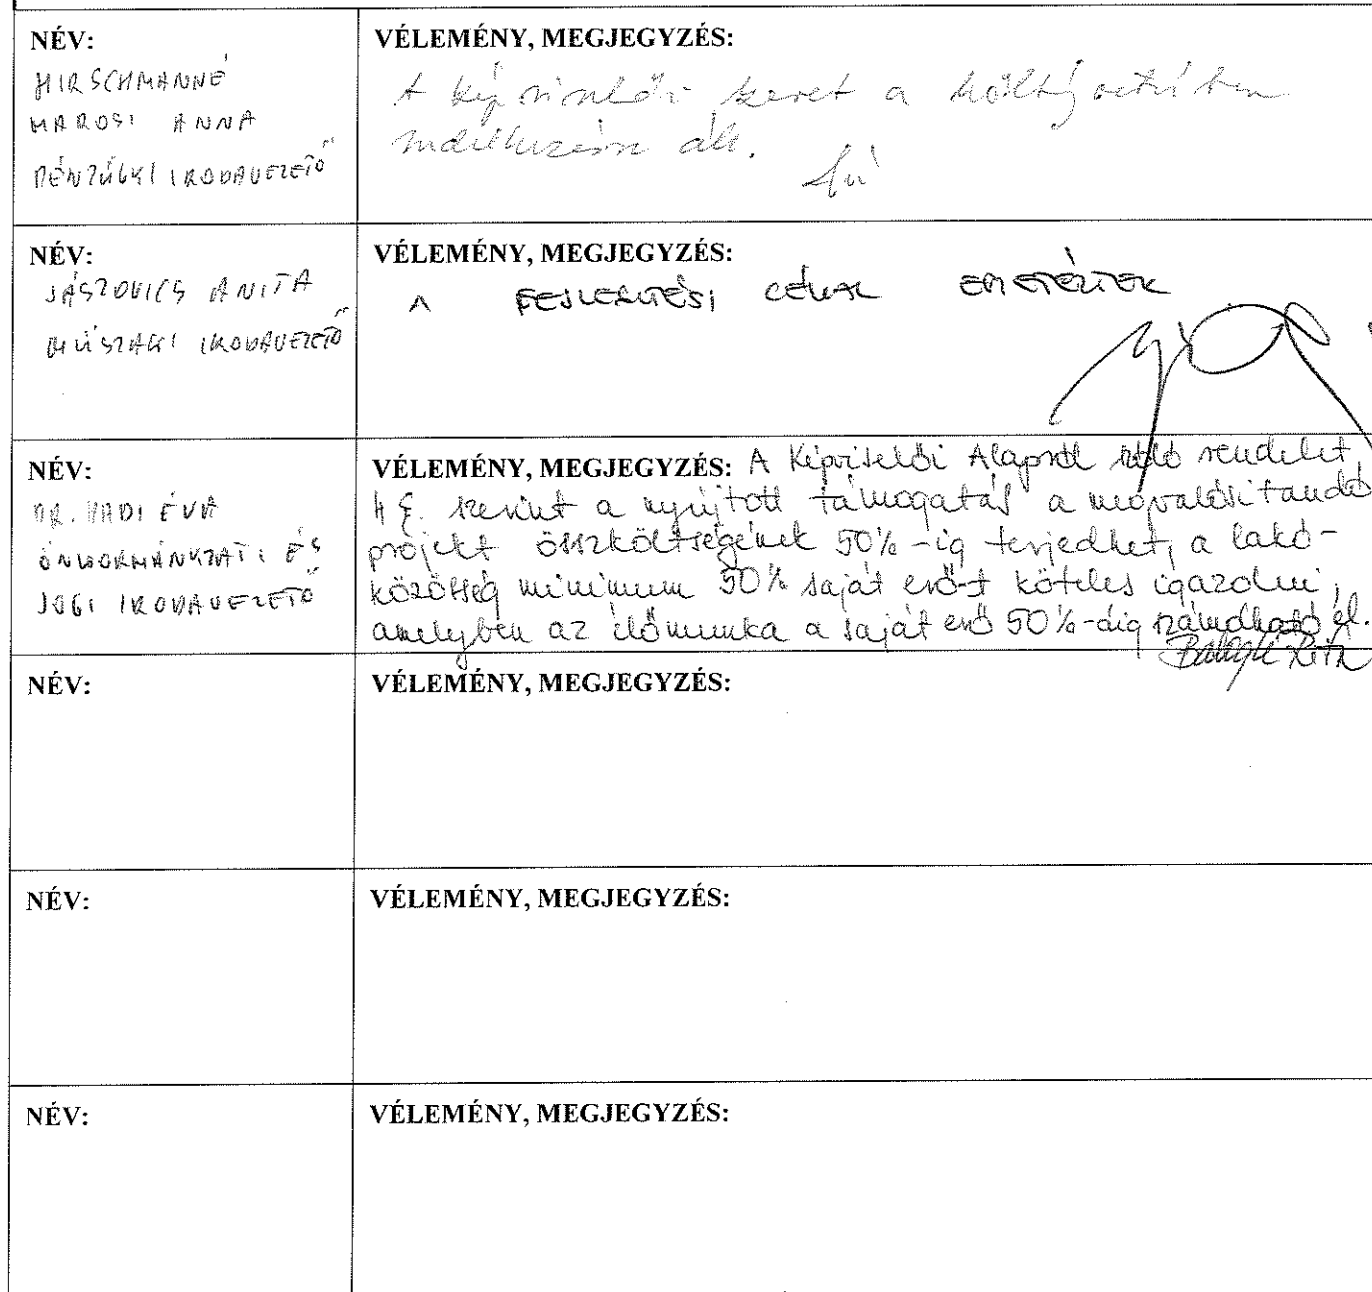 NÉV:
HIRSCHMANNÉ
MAROSI ANNA
PÉNZÜGYI IRODAVEZETŐ
VÉLEMÉNY, MEGJEGYZÉS:
A képviselői keret a költségvetésben
rendelkezésre áll.
NÉV:
JÁSZOVICS ANITA
MŰSZAKI IRODAVEZETŐ
VÉLEMÉNY, MEGJEGYZÉS:
A FEJLESZTÉSI CÉLLAL EGYETÉRTEK
NÉV:
DR. VADI ÉVA
ÖNKORMÁNYZATI ÉS
JOGI IRODAVEZETŐ
VÉLEMÉNY, MEGJEGYZÉS: A Képviselői Alapról szóló rendelet
4 §. szerint a nyújtott támogatás a megvalósítandó
projekt összköltségének 50%-ig terjedhet, a lakó-
közösség minimum 50% saját erőt köteles igazolni,
amelyben az élőmunka a saját erő 50%-áig számolható el.
NÉV:
VÉLEMÉNY, MEGJEGYZÉS:
NÉV:
VÉLEMÉNY, MEGJEGYZÉS:
NÉV:
VÉLEMÉNY, MEGJEGYZÉS: